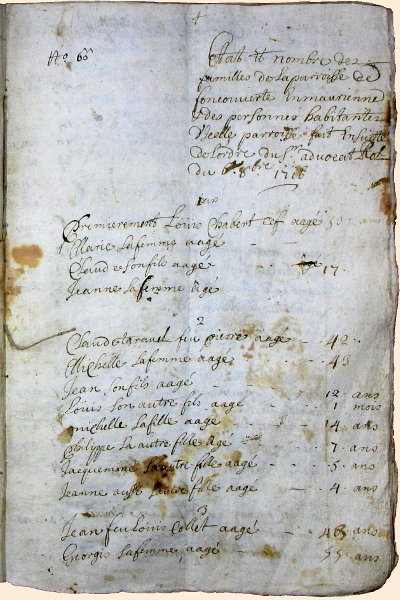 No 60
Estat et nombre des
familles de la parroisse de
foncouverte en maurienne
et des personnes habitantes
dicelle parroisse fait en suitte
de lordre du Sr advocat
du 1706
Premierement Louis Chabert aagé 55 ans
Marie sa femme aagé
Claude son fils aagé 17
Jeanne sa femme âgé
2
Claude taravel feu pierre aagé 42
Michelle sa femme aagé 45
Jean son fils aagé 12 ans
Louis son autre fils aagé 1 mois
michelle sa fille aagé 14 ans
Philippe sa autre fille âgé 7 ans
Jacquemine sa autre fille aagé 5 ans
Jeanne aussy sautre fille aagé 4 ans
3
Jean feu Louis Collet aagé 46 ans
Georgie sa femme aagé 55 ans